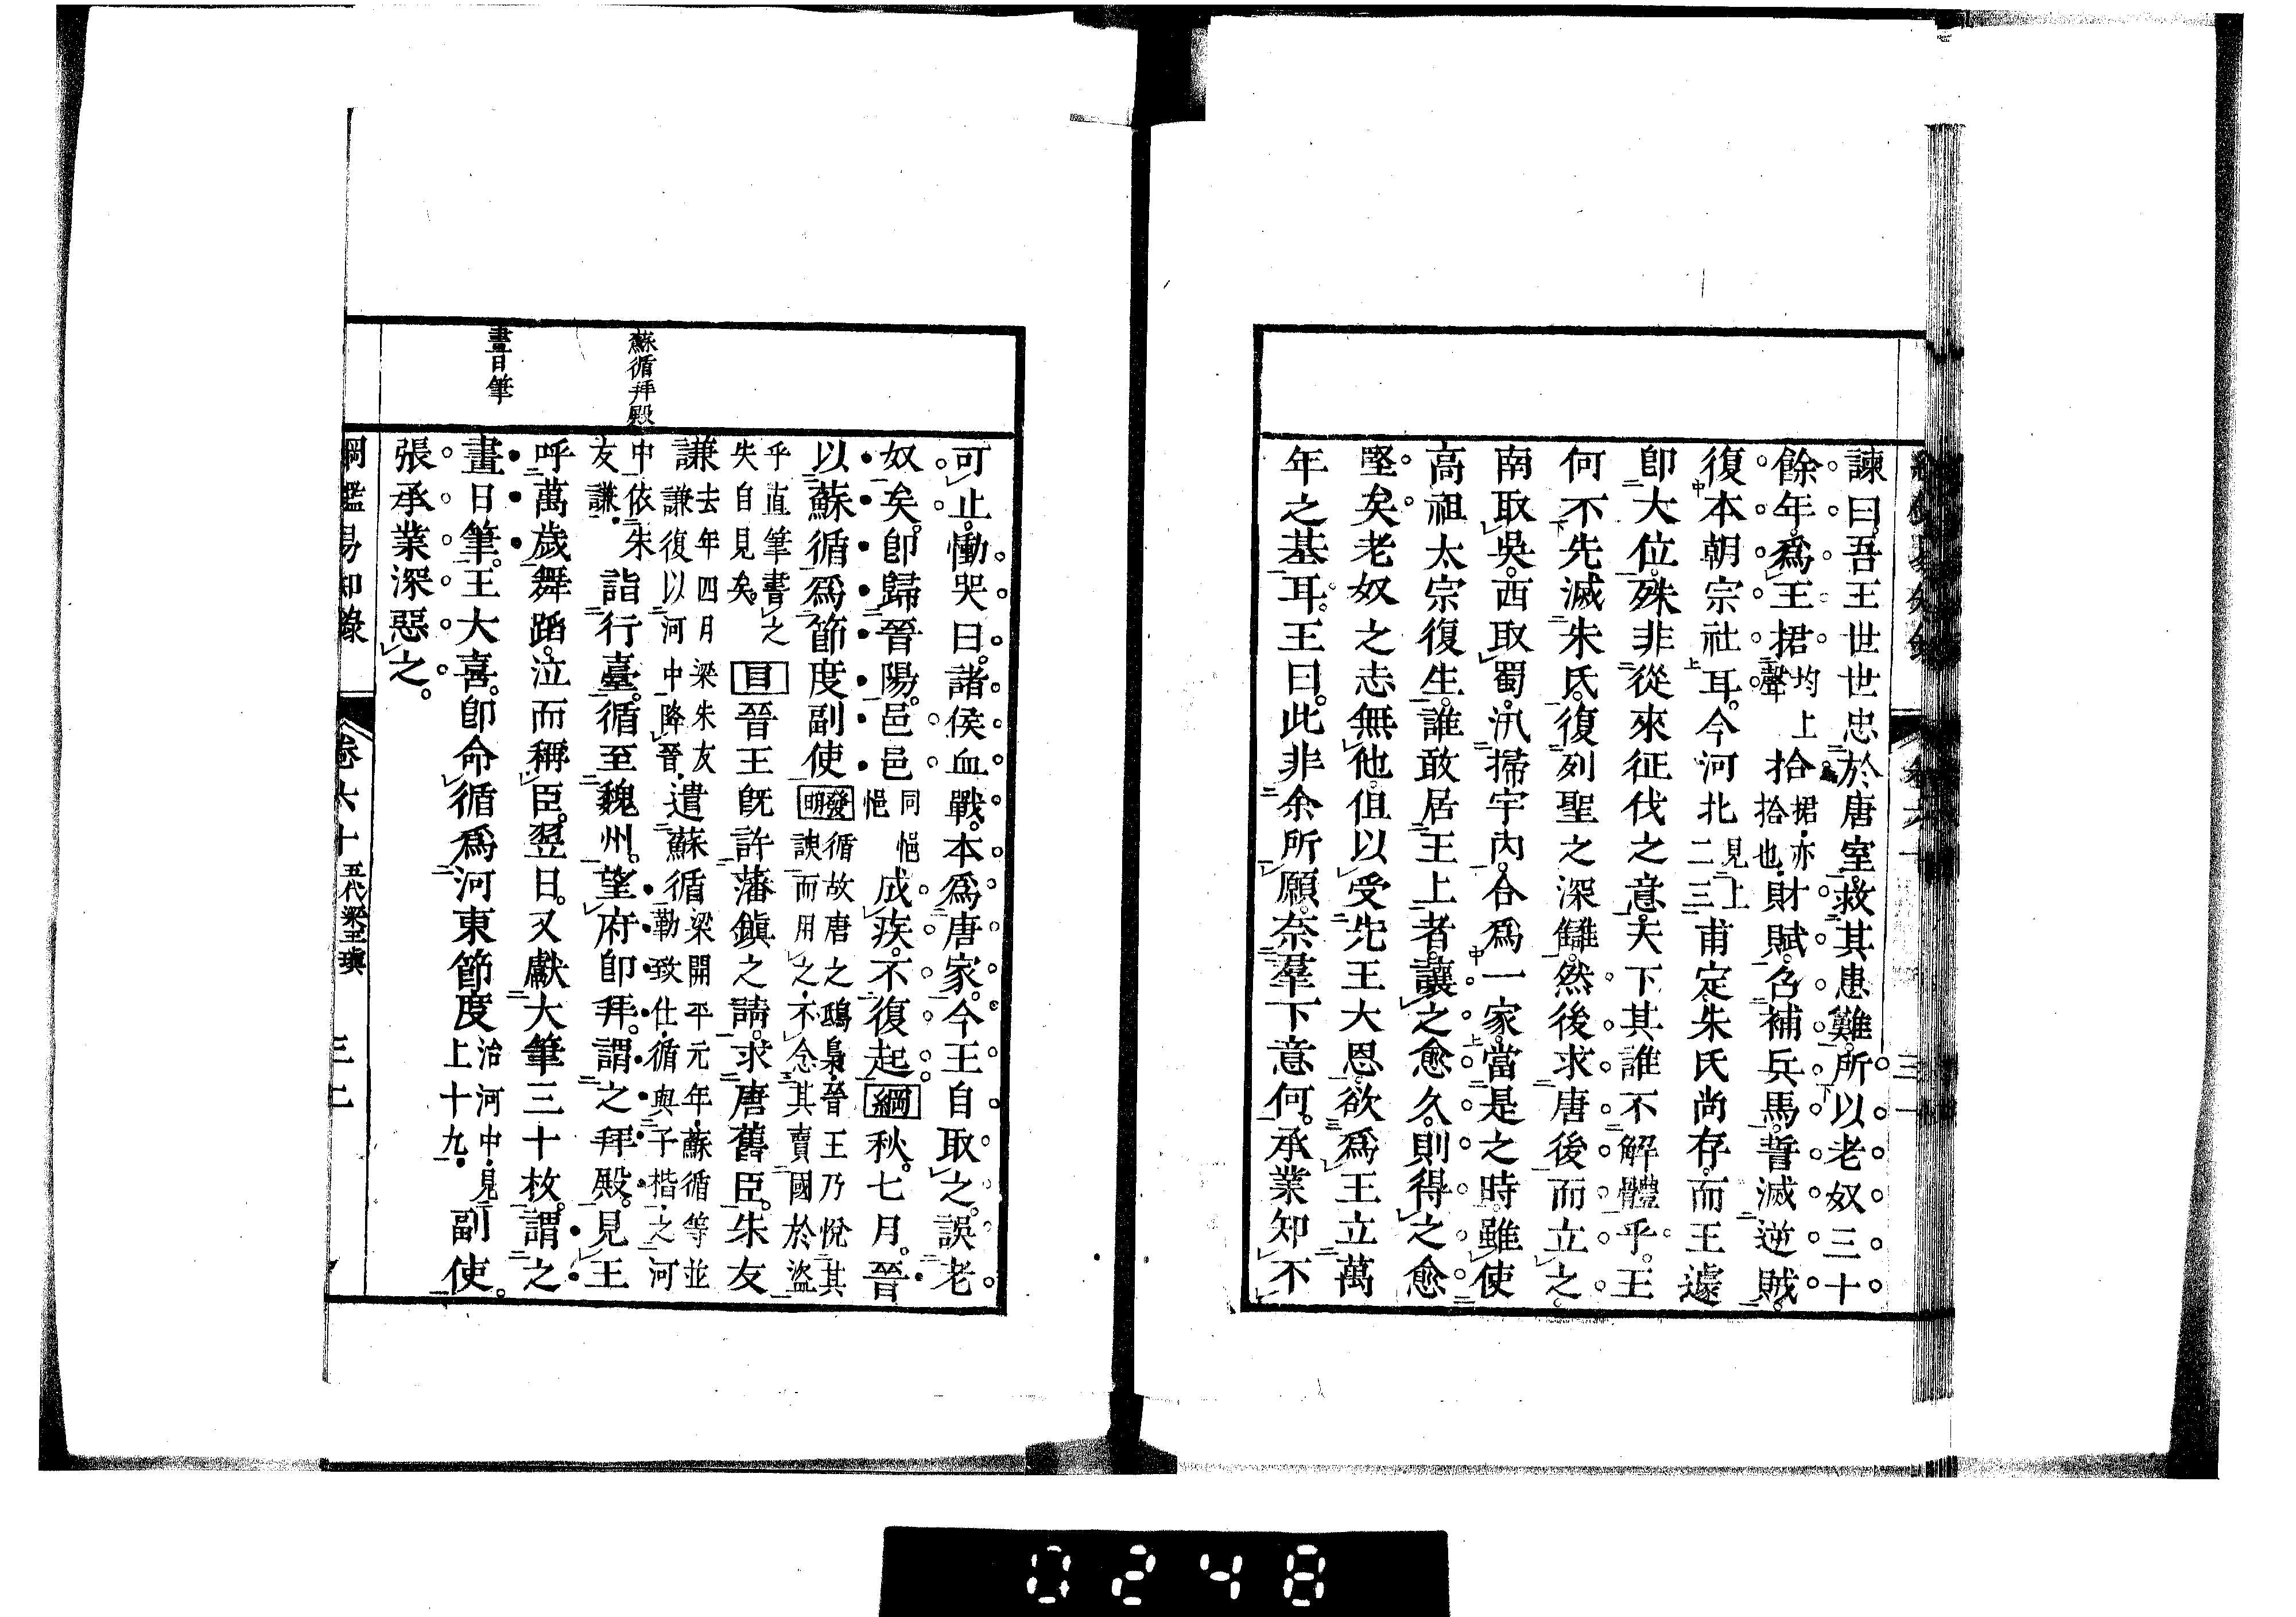 諫曰。吾王世世忠於唐室。救其患難。所以老奴三十
餘年。爲王捃均上聲拾捃亦拾也財賦。召補兵馬。誓滅逆賊。
復本朝宗社耳。今河北見上二三甫定。朱氏尚存。而王遽
卽大位。殊非從來征伐之意。天下其誰不解體乎。王
何不先滅朱氏。復列聖之深讎。然後求唐後而立之。
南取吳。西取蜀。汛掃宇內。合爲一家。當是之時。雖使
高祖太宗復生。誰敢居王上者。讓之愈久。則得之愈
堅矣。老奴之志無他。但以受先王大恩。欲爲王立萬
年之基耳。王曰。此非余所願。奈羣下意何。承業知不
可止。慟哭曰。諸侯血戰。本爲唐家。今王自取之。誤老
奴矣。卽歸晉陽。邑邑同悒悒成疾。不復起。綱秋。七月。晉
以蘇循爲節度副使發明循故唐之鴟梟。晉王乃悅其諛而用之。不念其賣國於盜
乎直筆書之失自見矣。目晉王旣許藩鎭之請。求唐舊臣。朱友
謙去年四月梁朱友謙復以河中降晉。遣蘇循梁開平元年。蘇循等並勒致仕。循與子楷。之河
中依朱友謙。詣行臺。循至魏州。望府卽拜。謂之拜殿。見王
呼萬歲舞蹈。泣而稱臣。翌日。又獻大筆三十枚。謂之
畫日筆。王大喜。卽命循爲河東節度治河中。見上十九。副使。
張承業深惡之。
蘇循拜殿
畫日筆
綱鑑易知錄 卷六十 五代梁主瑱